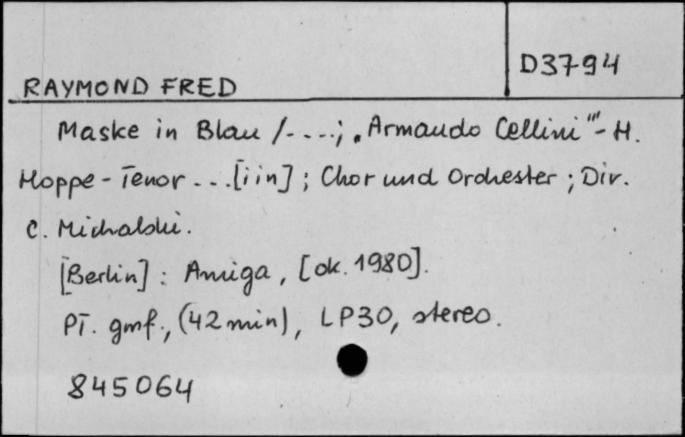 D3794
RAYMOND FRED
Maske in Blau /-...; „Armando Cellini"'- H.
Hoppe - Tenor ...[i in] ; Chor und Orchester ; Dir.
C. Michalski.
[Berlin] : Amiga, [ok. 1980].
Pł. gmf., (42 min), LP30, stereo.
845064